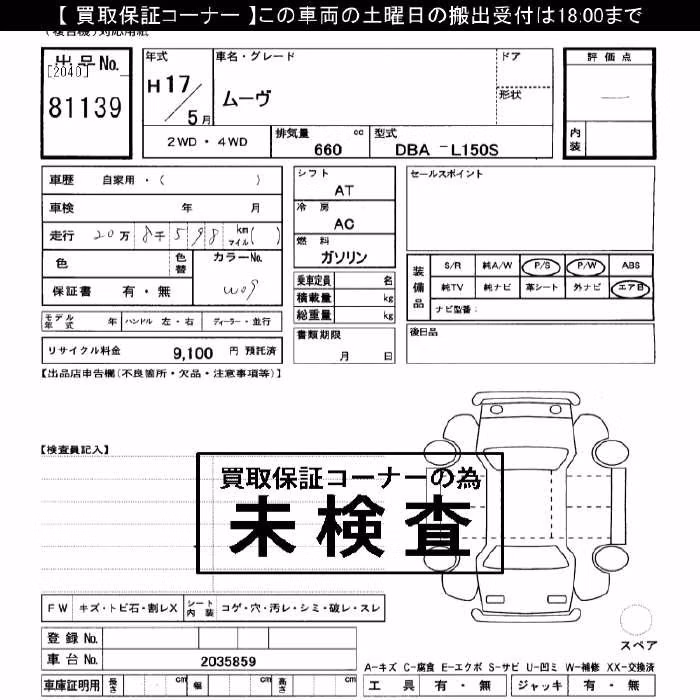 【 買取保証コーナー 】この車両の土曜日の搬出受付は18:00まで
(複合機)対応用紙
出品No.
[2040]
81139
年式
H17/5月
車名・グレード
ムーヴ
ドア
形状
評価点
内装
2WD・4WD
排気量 cc
660
型式
DBA -L150S
車歴 自家用・( )
車検 年 月
走行 20万8千598 km マイル( )
色
色替
カラーNo.
W09
保証書 有・無
シフト
AT
冷房
AC
燃料
ガソリン
乗車定員 名
積載量 kg
総重量 kg
セールスポイント
装備品
S/R 純A/W P/S P/W ABS
純TV 純ナビ 革シート 外ナビ エアB
ナビ型番:
モデル年式 年 ハンドル 左・右 ディーラー・並行
書類期限
月 日
後日品
リサイクル料金 9,100 円 預託済
【出品店申告欄(不良箇所・欠品・注意事項等)】
【検査員記入】
買取保証コーナーの為
未検査
FW キズ・トビ石・割レX シート内装 コゲ・穴・汚レ・シミ・破レ・スレ
登録No.
車台No. 2035859
車庫証明用 長さ cm 幅 cm 高さ cm
スペア
A-キズ C-腐食 E-エクボ S-サビ U-凹ミ W-補修 XX-交換済
工具 有・無 ジャッキ 有・無